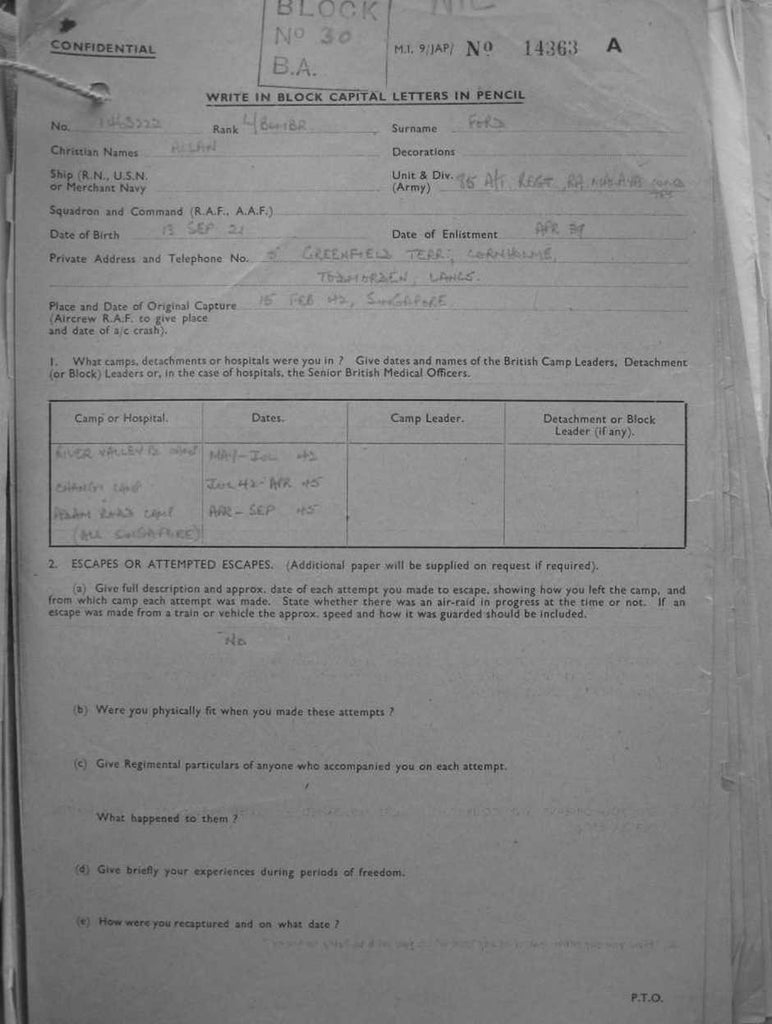 BLOCK NIL
Nº 30
B.A.
CONFIDENTIAL
M.I. 9/JAP/ Nº 14363 A
WRITE IN BLOCK CAPITAL LETTERS IN PENCIL
No. 1463222 Rank L/BMBR Surname FORD
Christian Names ALLAN Decorations
Ship (R.N., U.S.N. or Merchant Navy Unit & Div. (Army) 85 A/T REGT, RA MALAYA
Squadron and Command (R.A.F., A.A.F.)
Date of Birth 13 SEP 21 Date of Enlistment APR 39
Private Address and Telephone No. 5 GREENFIELD TERR; CORNHOLME,
TODMORDEN, LANCS.
Place and Date of Original Capture 15 FEB 42, SINGAPORE
(Aircrew R.A.F. to give place
and date of a/c crash).
1. What camps, detachments or hospitals were you in ? Give dates and names of the British Camp Leaders, Detachment
(or Block) Leaders or, in the case of hospitals, the Senior British Medical Officers.
Camp or Hospital. Dates. Camp Leader. Detachment or Block
Leader (if any).
RIVER VALLEY RD CAMP MAY-JUL 42
CHANGI CAMP JUL 42-APR 45
ADAM ROAD CAMP APR-SEP 45
(ALL SINGAPORE)
2. ESCAPES OR ATTEMPTED ESCAPES. (Additional paper will be supplied on request if required).
(a) Give full description and approx. date of each attempt you made to escape, showing how you left the camp, and
from which camp each attempt was made. State whether there was an air-raid in progress at the time or not. If an
escape was made from a train or vehicle the approx. speed and how it was guarded should be included.
No.
(b) Were you physically fit when you made these attempts ?
(c) Give Regimental particulars of anyone who accompanied you on each attempt.
What happened to them ?
(d) Give briefly your experiences during periods of freedom.
(e) How were you recaptured and on what date ?
P.T.O.